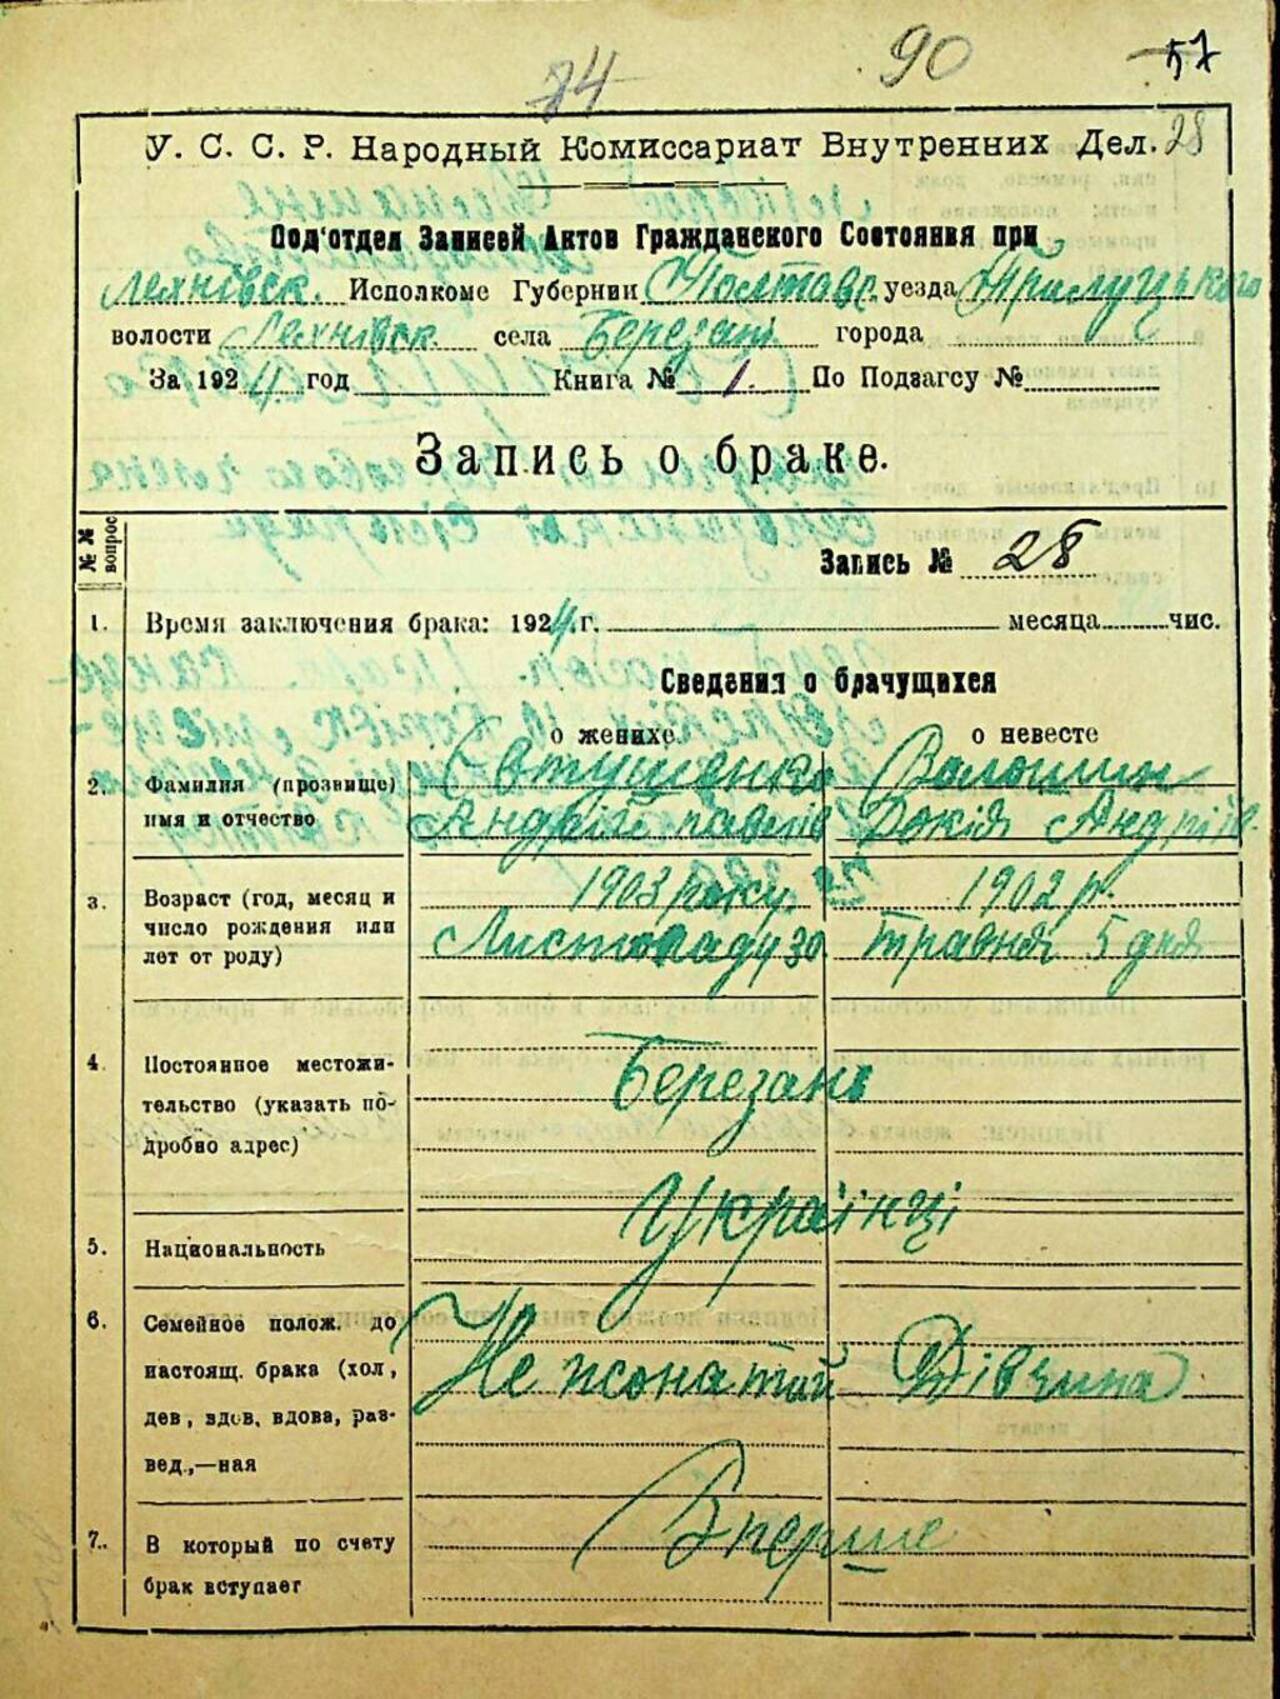 74 90 57
У. С. С. Р. Народный Комиссариат Внутренних Дел. 28
Под'отдел Записей Актов Гражданского Состояния при
Лехнівск. Исполкоме Губернии Полтавс. уезда Прилуцького
волости Лехнівск. села Березані города
За 1924 год Книга № 1. По Подзагсу №
Запись о браке.
№ № вопрос
Запись № 28
1. Время заключения брака: 1924 г. месяца чис.
Сведения о брачущихся
о женихе о невесте
2. Фамилия (прозвище) Євтушенко Волошин
имя и отчество Андрій Павлів Докія Андріів.
3. Возраст (год, месяц и 1903 року. 1902 р.
число рождения или Листопаду 30 травня 5 дня
лет от роду)
4. Постоянное местожи- Березань
тельство (указать по-
дробно адрес)
Українці
5. Национальность
6. Семейное полож. до
настоящ. брака (хол, Не жонатий Дівчина
дев, вдов, вдова, раз-
вед.,—ная
7. В который по счету Вперше
брак вступает